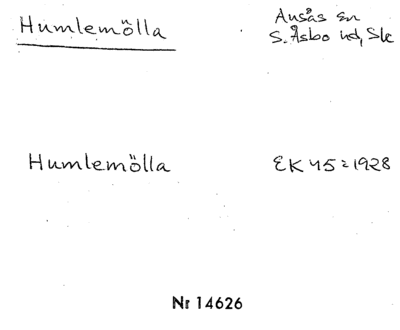 Humlemölla
Ausås sn
S. Åsbo hd, Sk
Humlemölla
EK 45 = 1928
Nr 14626